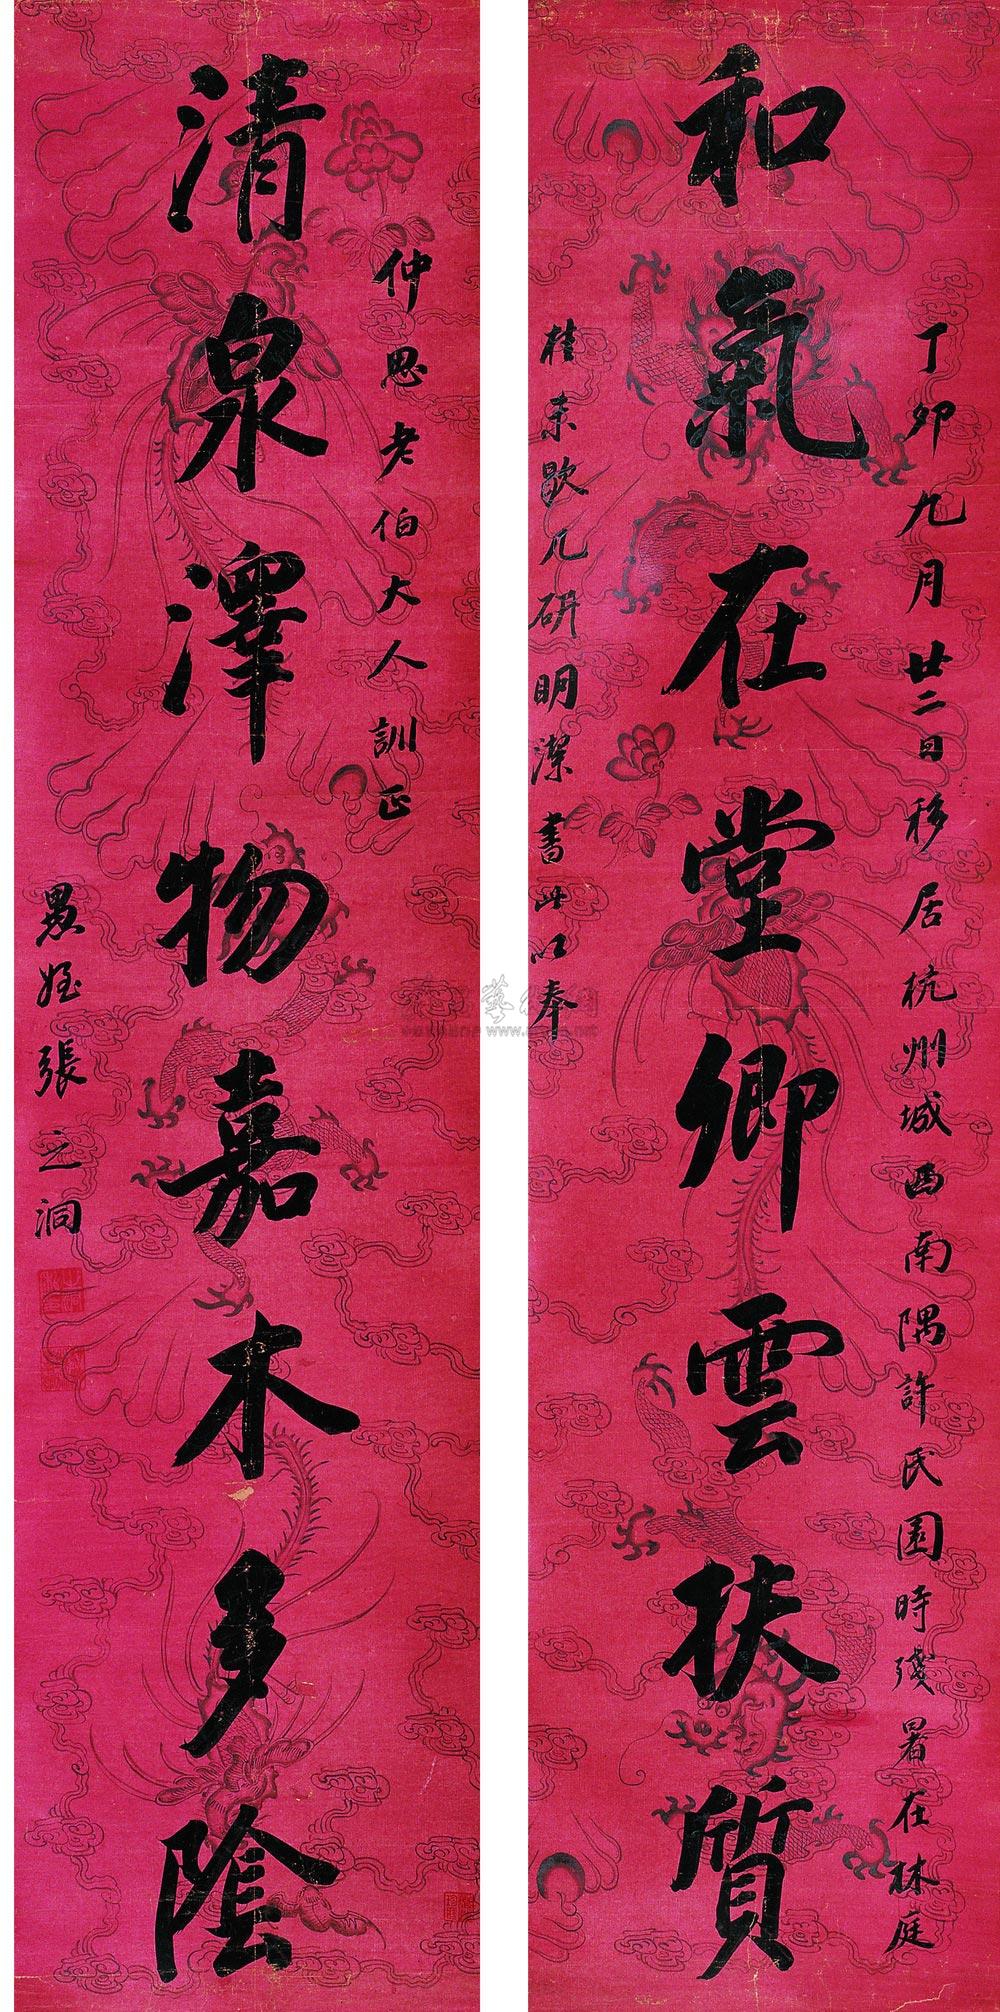 丁卯九月廿二日移居杭州城西南隅許氏園時殘暑在林庭
和氣在堂卿雲扶質
桂未歇几研明潔書此以奉
仲思老伯大人訓正
清泉澤物嘉木多陰
愚姪張之洞